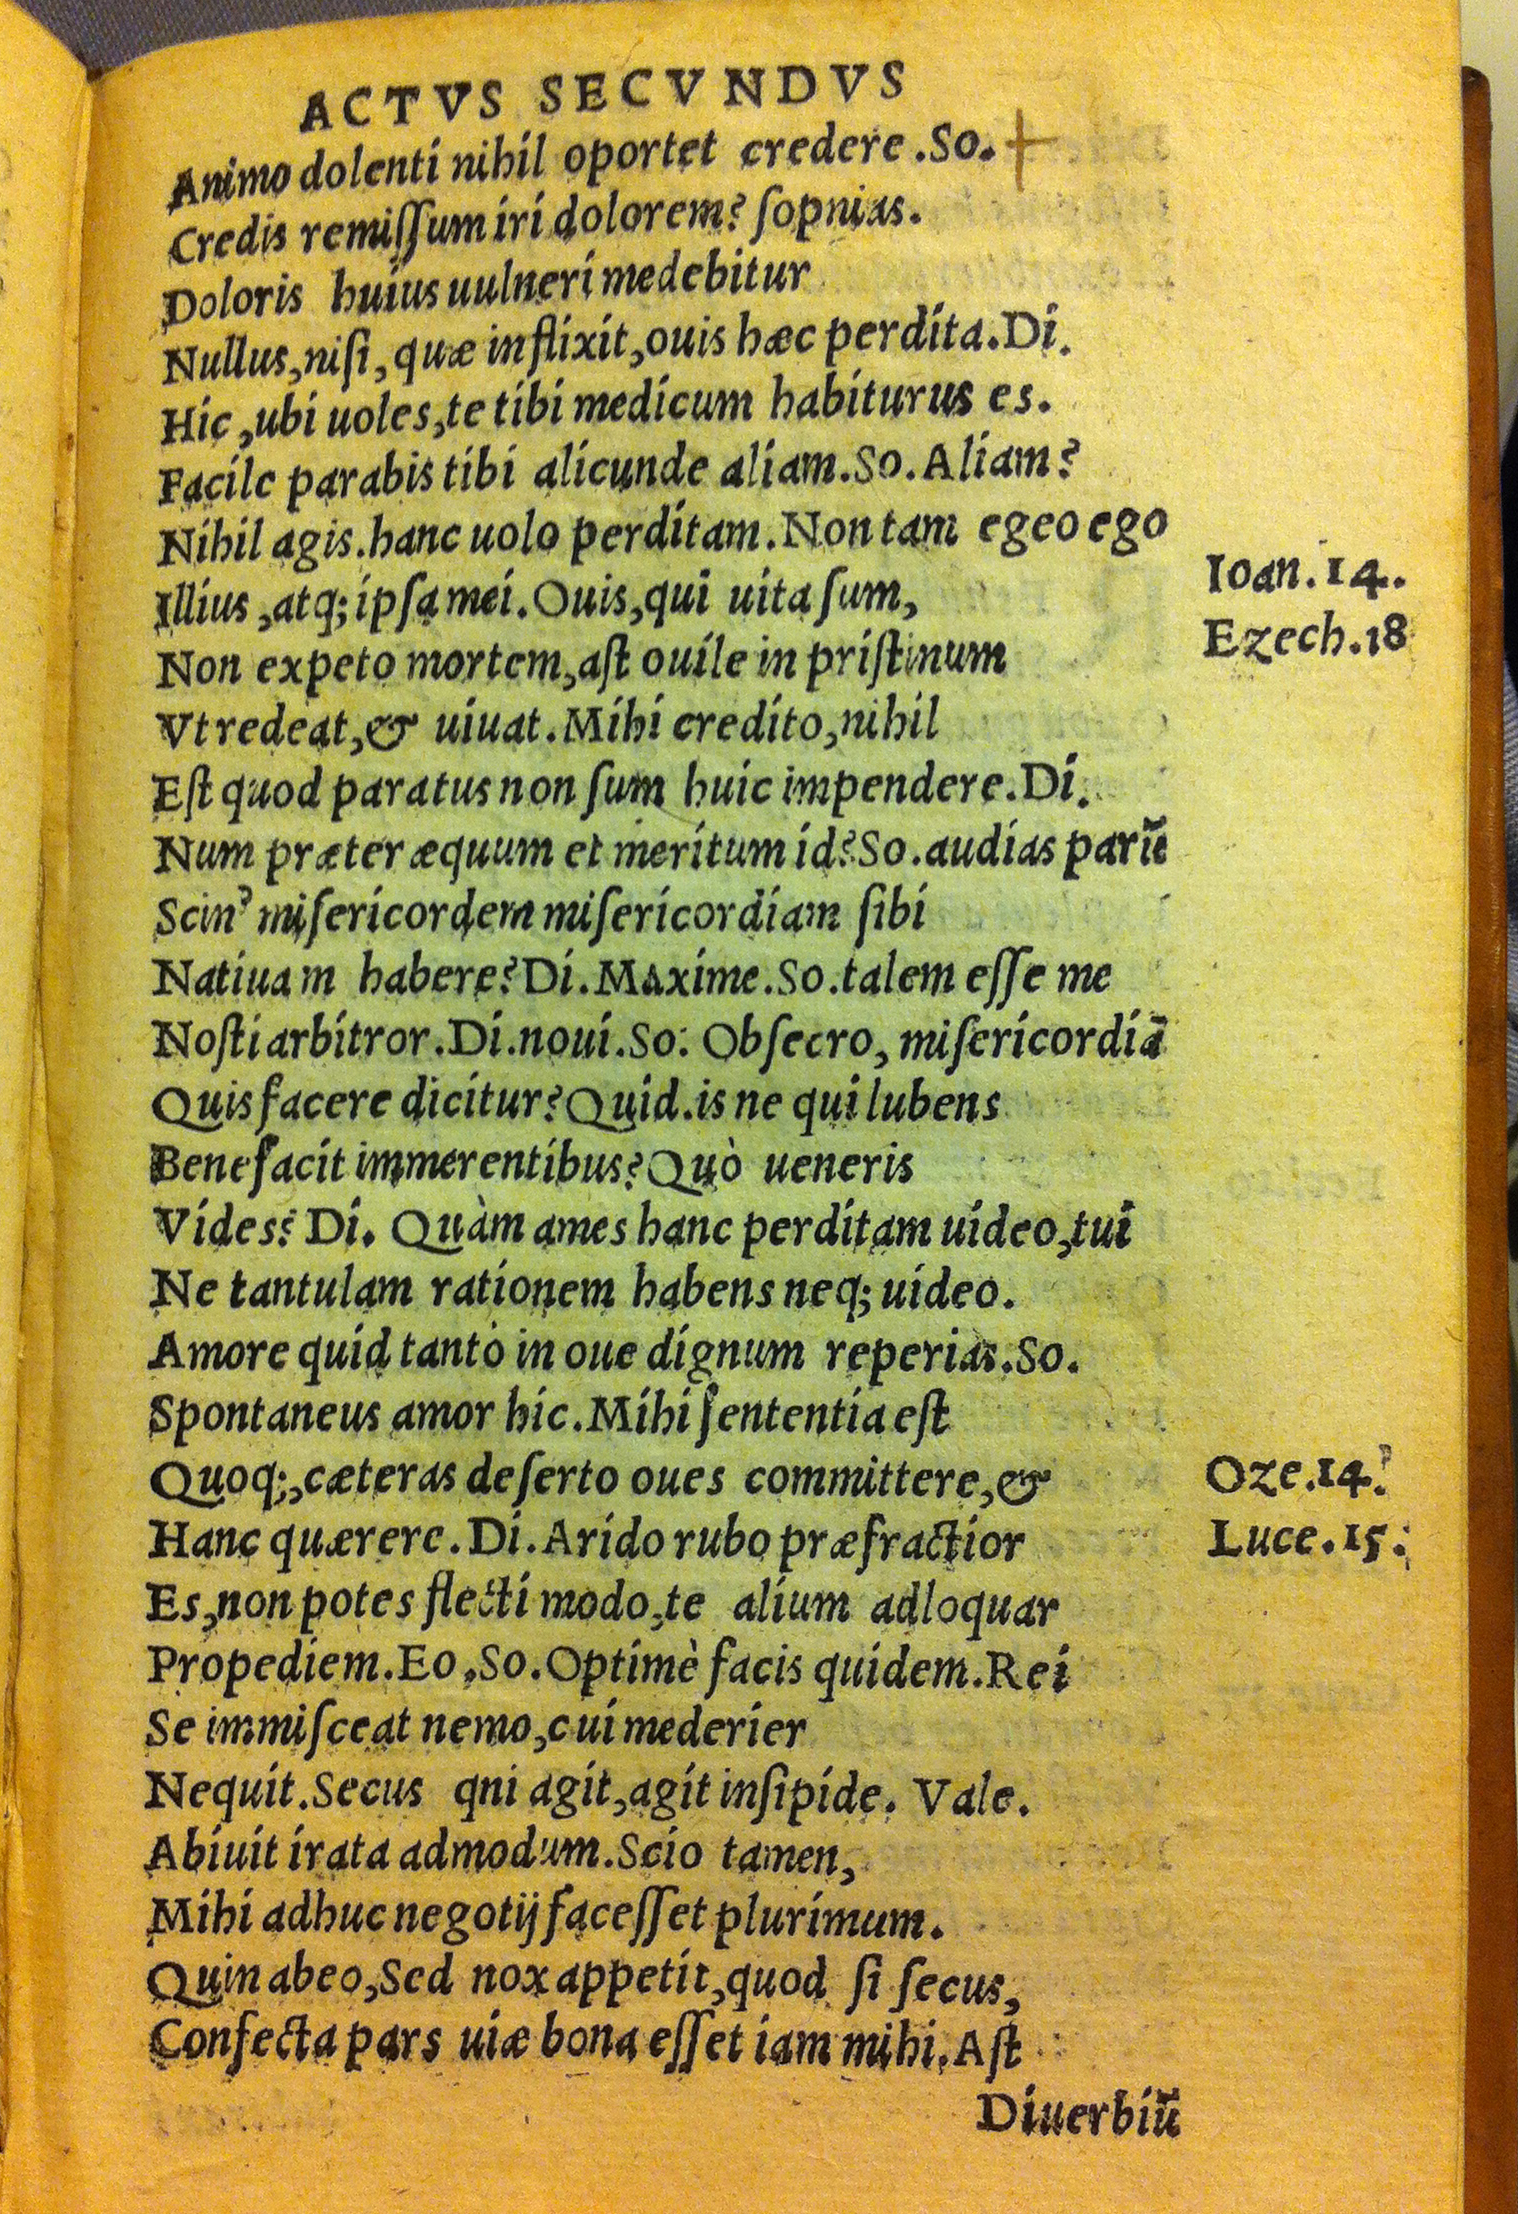 ACTVS SECVNDVS
Animo dolenti nihil oportet credere .So.
Credis remiſſum iri dolorem? ſopnias.
Doloris huius uulneri medebitur
Nullus, niſi, quæ inflixit, ouis hæc perdita. Di.
Hic, ubi uoles, te tibi medicum habiturus es.
Facile parabis tibi alicunde aliam. So. Aliam?
Nihil agis. hanc uolo perditam. Non tam egeo ego
Illius, atq; ipſa mei. Ouis, qui uita ſum,
Ioan. 14.
Non expeto mortem, aſt ouile in priſtinum
Ezech. 18
Vt redeat, & uiuat. Mihi credito, nihil
Eſt quod paratus non ſum huic impendere. Di.
Num præter æquum et meritum id? So. audias parū
Scin' miſericordem miſericordiam ſibi
Natiuam habere? Di. Maxime. So. talem eſſe me
Noſti arbitror. Di. noui. So. Obſecro, miſericordiā
Quis facere dicitur? Quid. is ne qui lubens
Benefacit immerentibus? Quò ueneris
Vides? Di. Quàm ames hanc perditam uideo, tui
Ne tantulam rationem habens neq; uideo.
Amore quid tantò in oue dignum reperias. So.
Spontaneus amor hic. Mihi ſententia eſt
Quoq;, cæteras deſerto oues committere, &
Oze. 14.
Hanc quærere. Di. Arido rubo præfractior
Luce. 15.
Es, non potes flecti modo, te alium adloquar
Propediem. Eo, So. Optimè facis quidem. Rei
Se immiſceat nemo, cui mederier
Nequit. Secus qni agit, agit inſipide. Vale.
Abiuit irata admodum. Scio tamen,
Mihi adhuc negotij faceſſet plurimum.
Quin abeo, Sed nox appetit, quod ſi ſecus,
Confecta pars uiæ bona eſſet iam mihi. Aſt
Diuerbiū